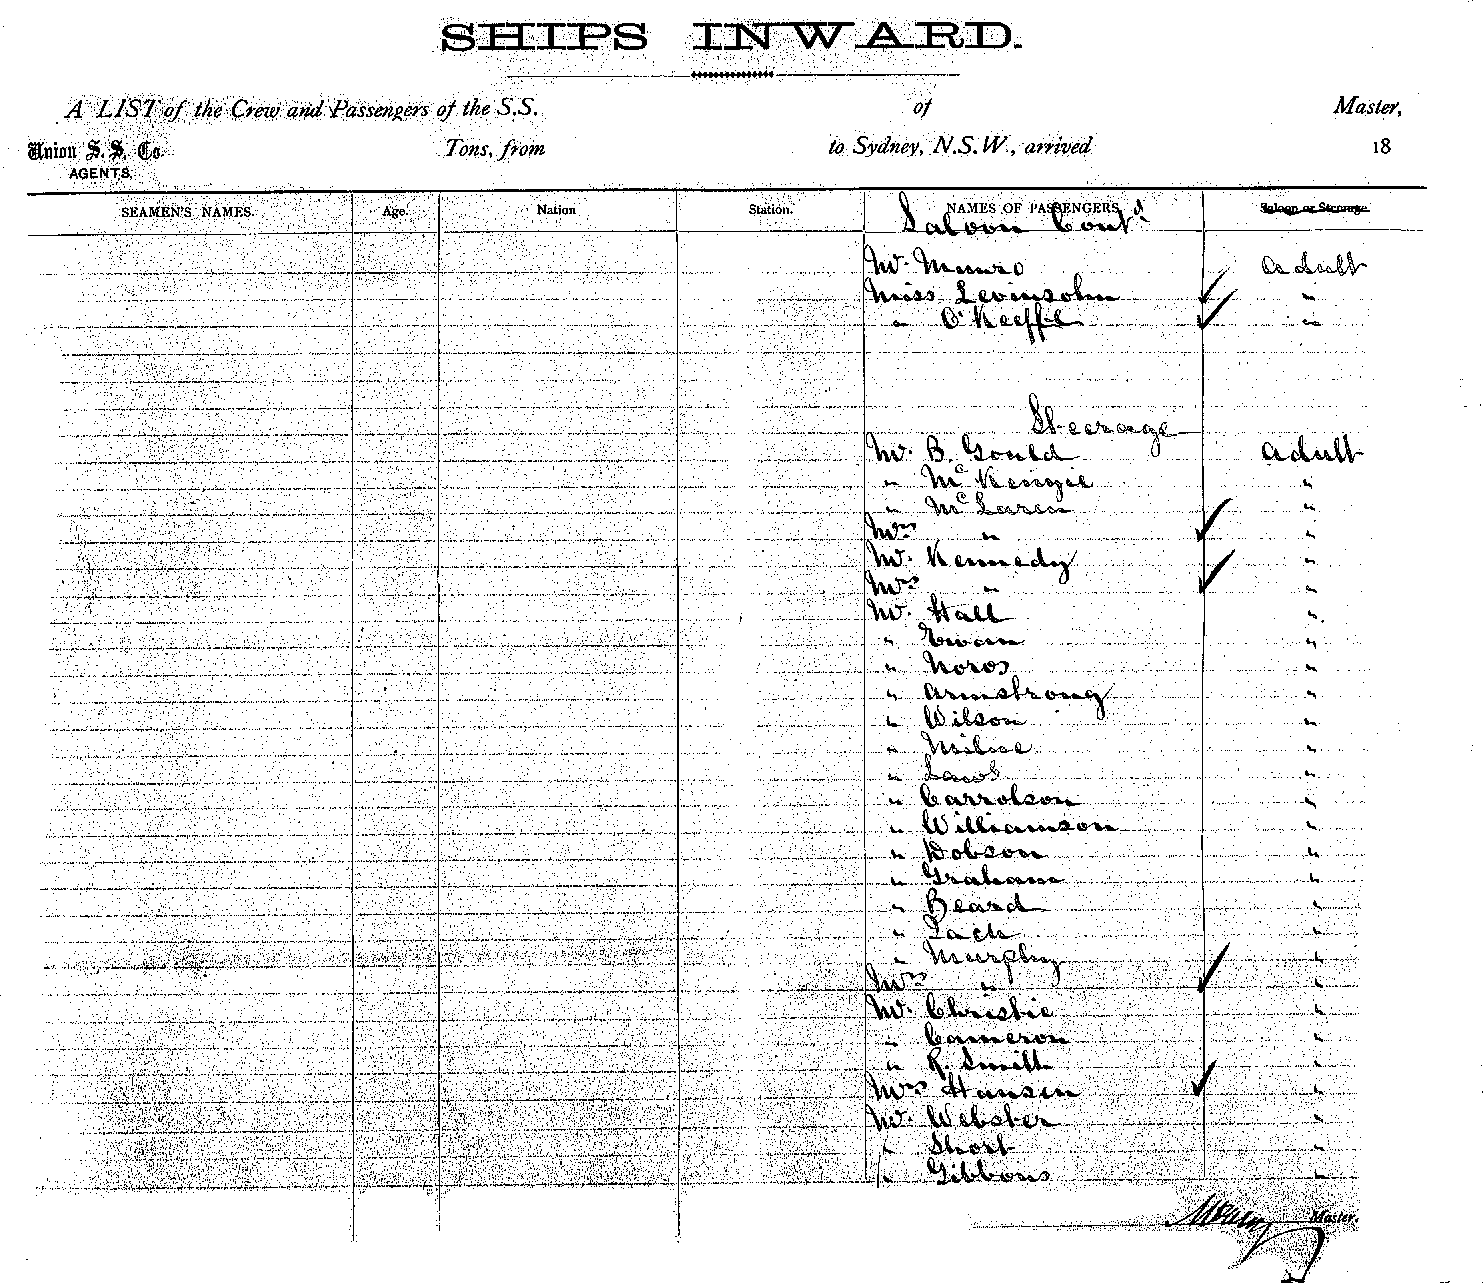 SHIPS INWARD.
A LIST of the Crew and Passengers of the S.S. of Master,
Union S. S. Co. Tons, from to Sydney, N.S.W., arrived 18
AGENTS.
SEAMEN'S NAMES. Age. Nation Station. NAMES OF PASSENGERS Saloon or Steerage
Saloon Contd
Mr. Munro Adult
Miss Levinsohn "
" O'Keeffe "
Steerage
Mr. B. Gould Adult
" McKenzie "
" McLaren "
Mrs " "
Mr. Kennedy "
Mrs " "
Mr. Hall "
" Ewan "
" Noros "
" Armstrong "
" Wilson "
" Milne "
" Laws "
" Carrolson "
" Williamson "
" Dobson "
" Graham "
" Beard "
" Lack "
" Murphy "
Mrs " "
Mr. Christie "
" Cameron "
" R. Smith "
Mrs Hansen "
Mr. Webster "
" Short "
" Gibbons "
Master.